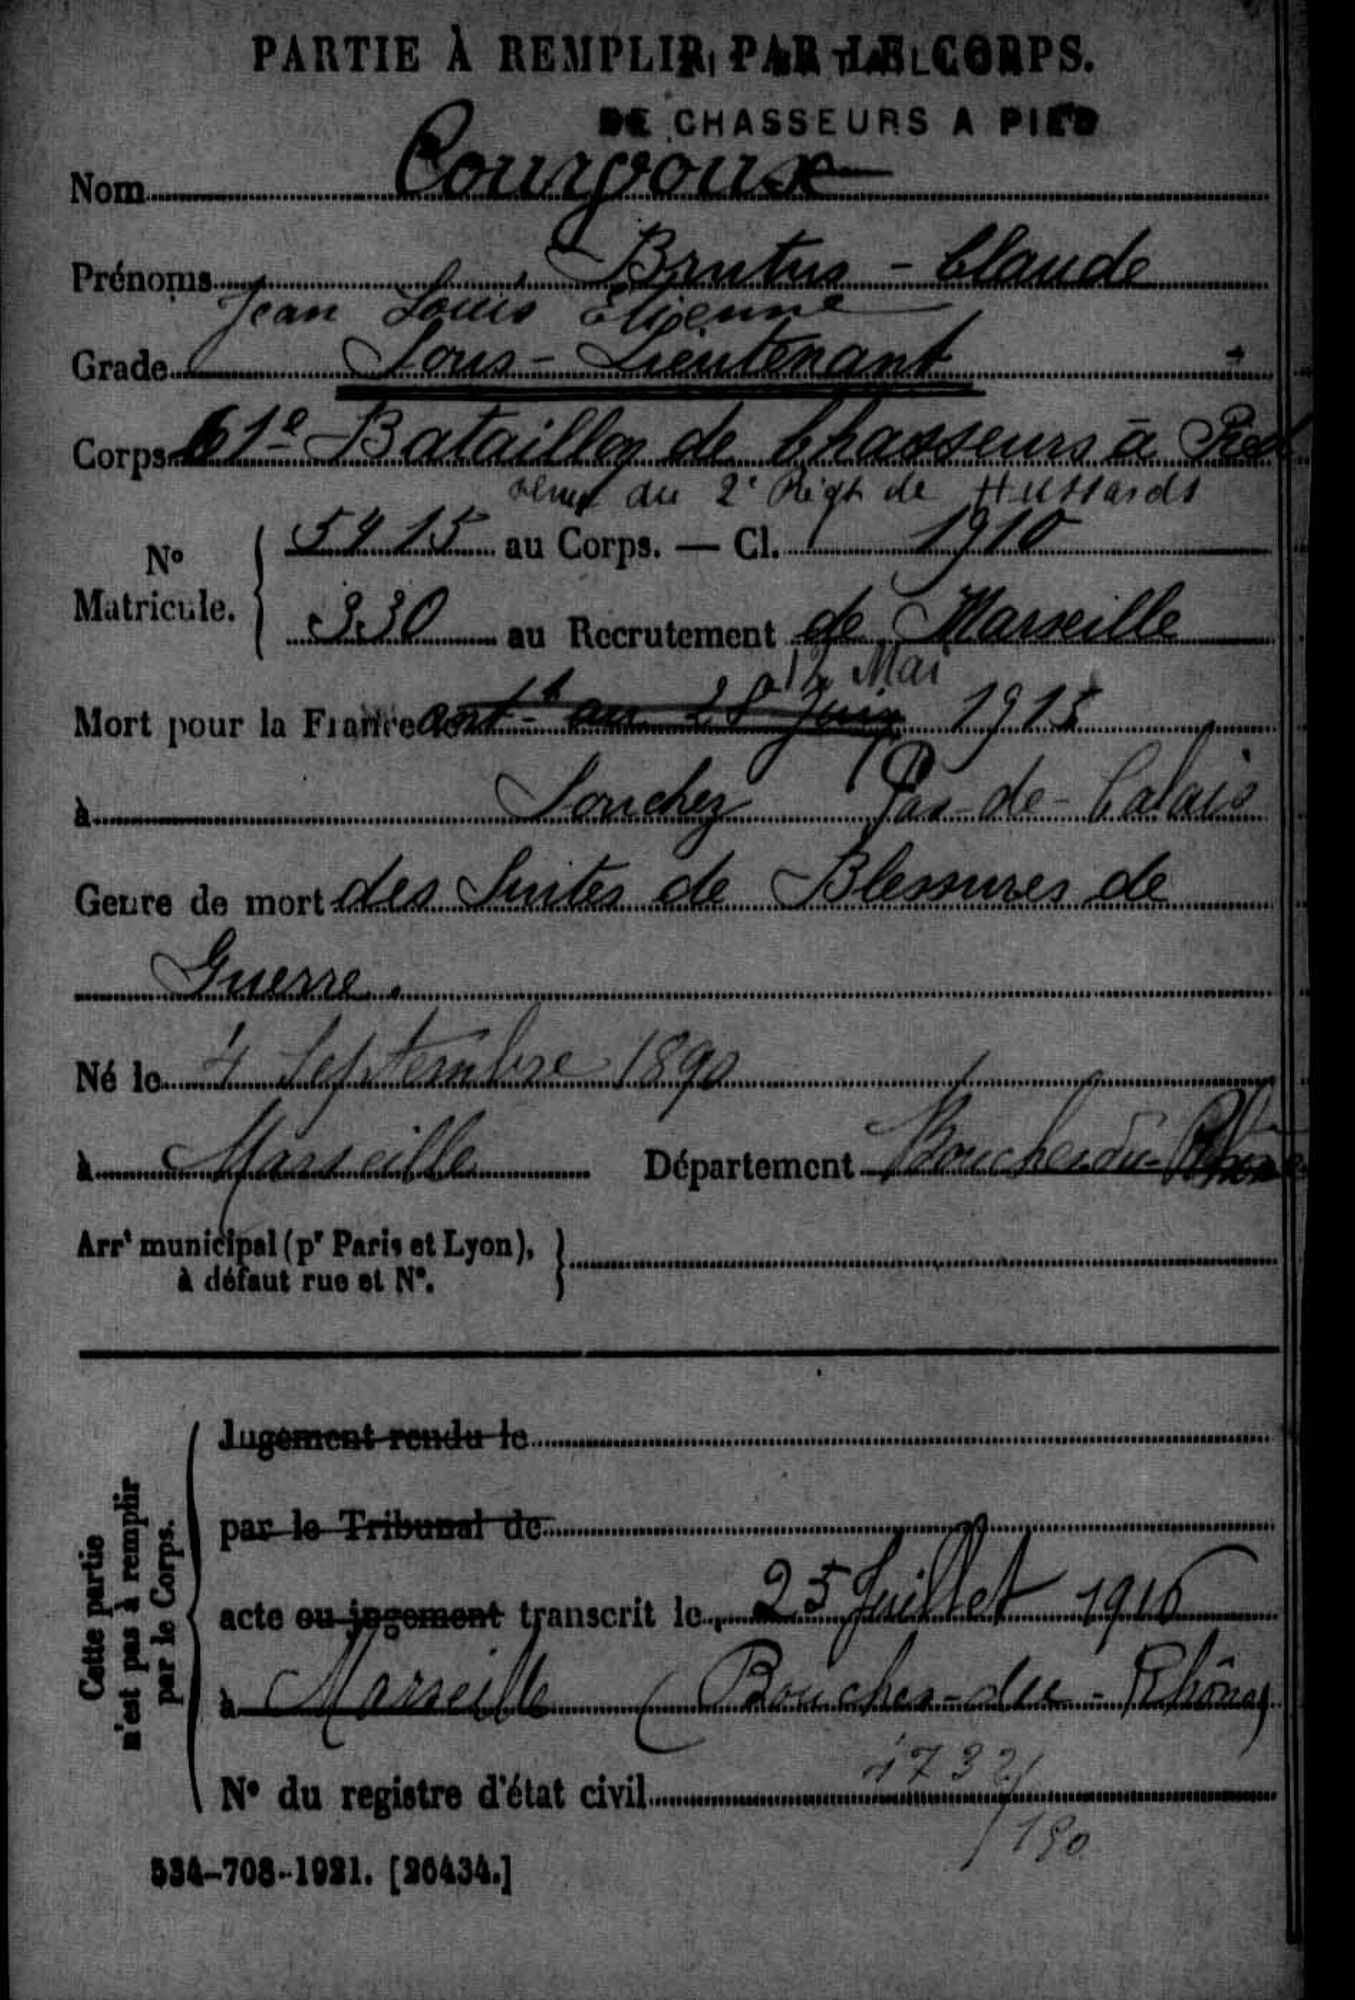 PARTIE À REMPLIR PAR LE CORPS.
DE CHASSEURS A PIED
Nom Courvoux
Prénoms Brutus - Claude
Jean Louis Etienne
Grade Sous-Lieutenant
Corps 61e Bataillon de Chasseurs à Pied
venu du 2e Régt de Hussards
No Matricule. { 5415 au Corps. — Cl. 1910
330 au Recrutement de Marseille
12 Mai
Mort pour la France le antt au 28 Juin 1915
à Souchez Pas-de-Calais
Genre de mort des Suites de Blessures de
Guerre.
Né le 4 Septembre 1890
à Marseille Département Bouches-du-Rhône
Arrt municipal (pr Paris et Lyon), }
à défaut rue et N°.
Cette partie n'est pas à remplir par le Corps.
Jugement rendu le
par le Tribunal de
acte ou jugement transcrit le 25 Juillet 1916
à Marseille (Bouches-du-Rhône)
N° du registre d'état civil 1732/
/190
534-708-1921. [26434.]